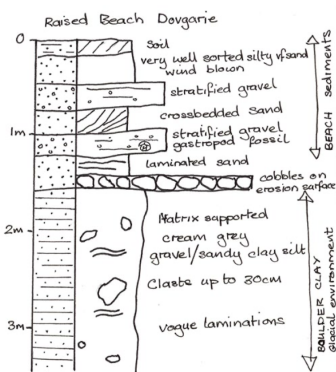 Raised Beach Dovgarie
0
soil
very well sorted silty v.f sand
wind blown
stratified gravel
crossbedded sand
1m
stratified gravel
gastropod fossil
laminated sand
cobbles on
erosion surface
BEACH sediments
2m
Matrix supported
cream grey
gravel/sandy clay silt
Clasts up to 30cm
vogue laminations
3m
BOULDER CLAY
Glacial environment